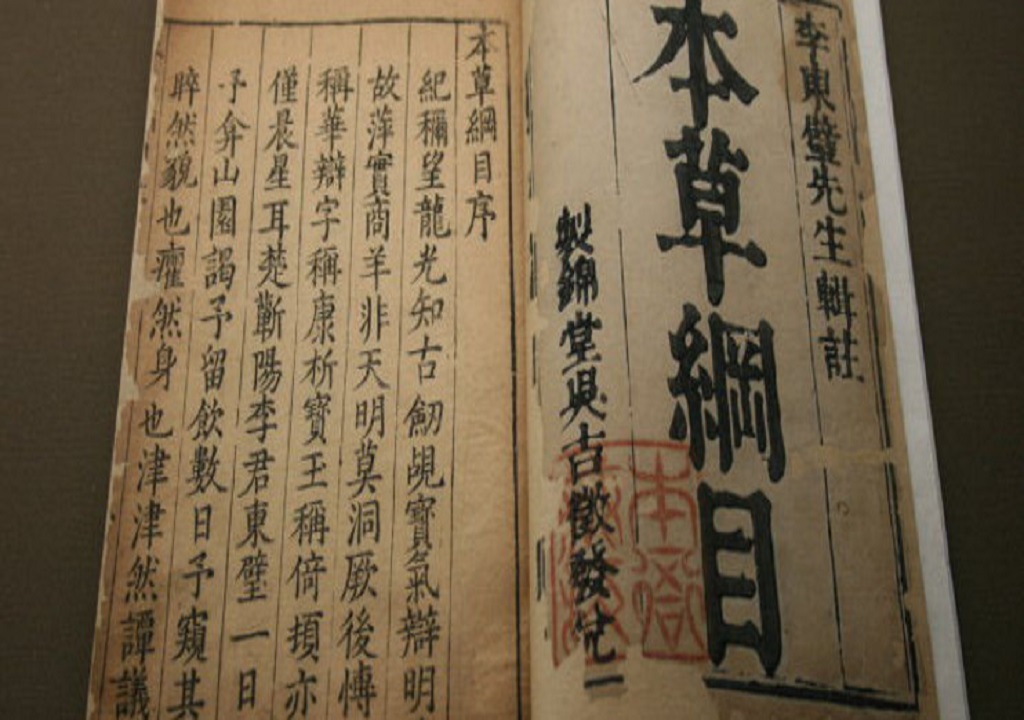 李東璧先生輯註
本草綱目
製錦堂吳古徵發兌
本衙
藏板
本草綱目序
紀稱望龍光知古劒覘寶氣辯明
故萍實商羊非天明莫洞厥後愽
稱華辯字稱康析寶玉稱倚頓亦
僅晨星耳楚蘄陽李君東璧一日
予弇山園謁予留飲數日予窺其
睟然貌也癯然身也津津然譚議